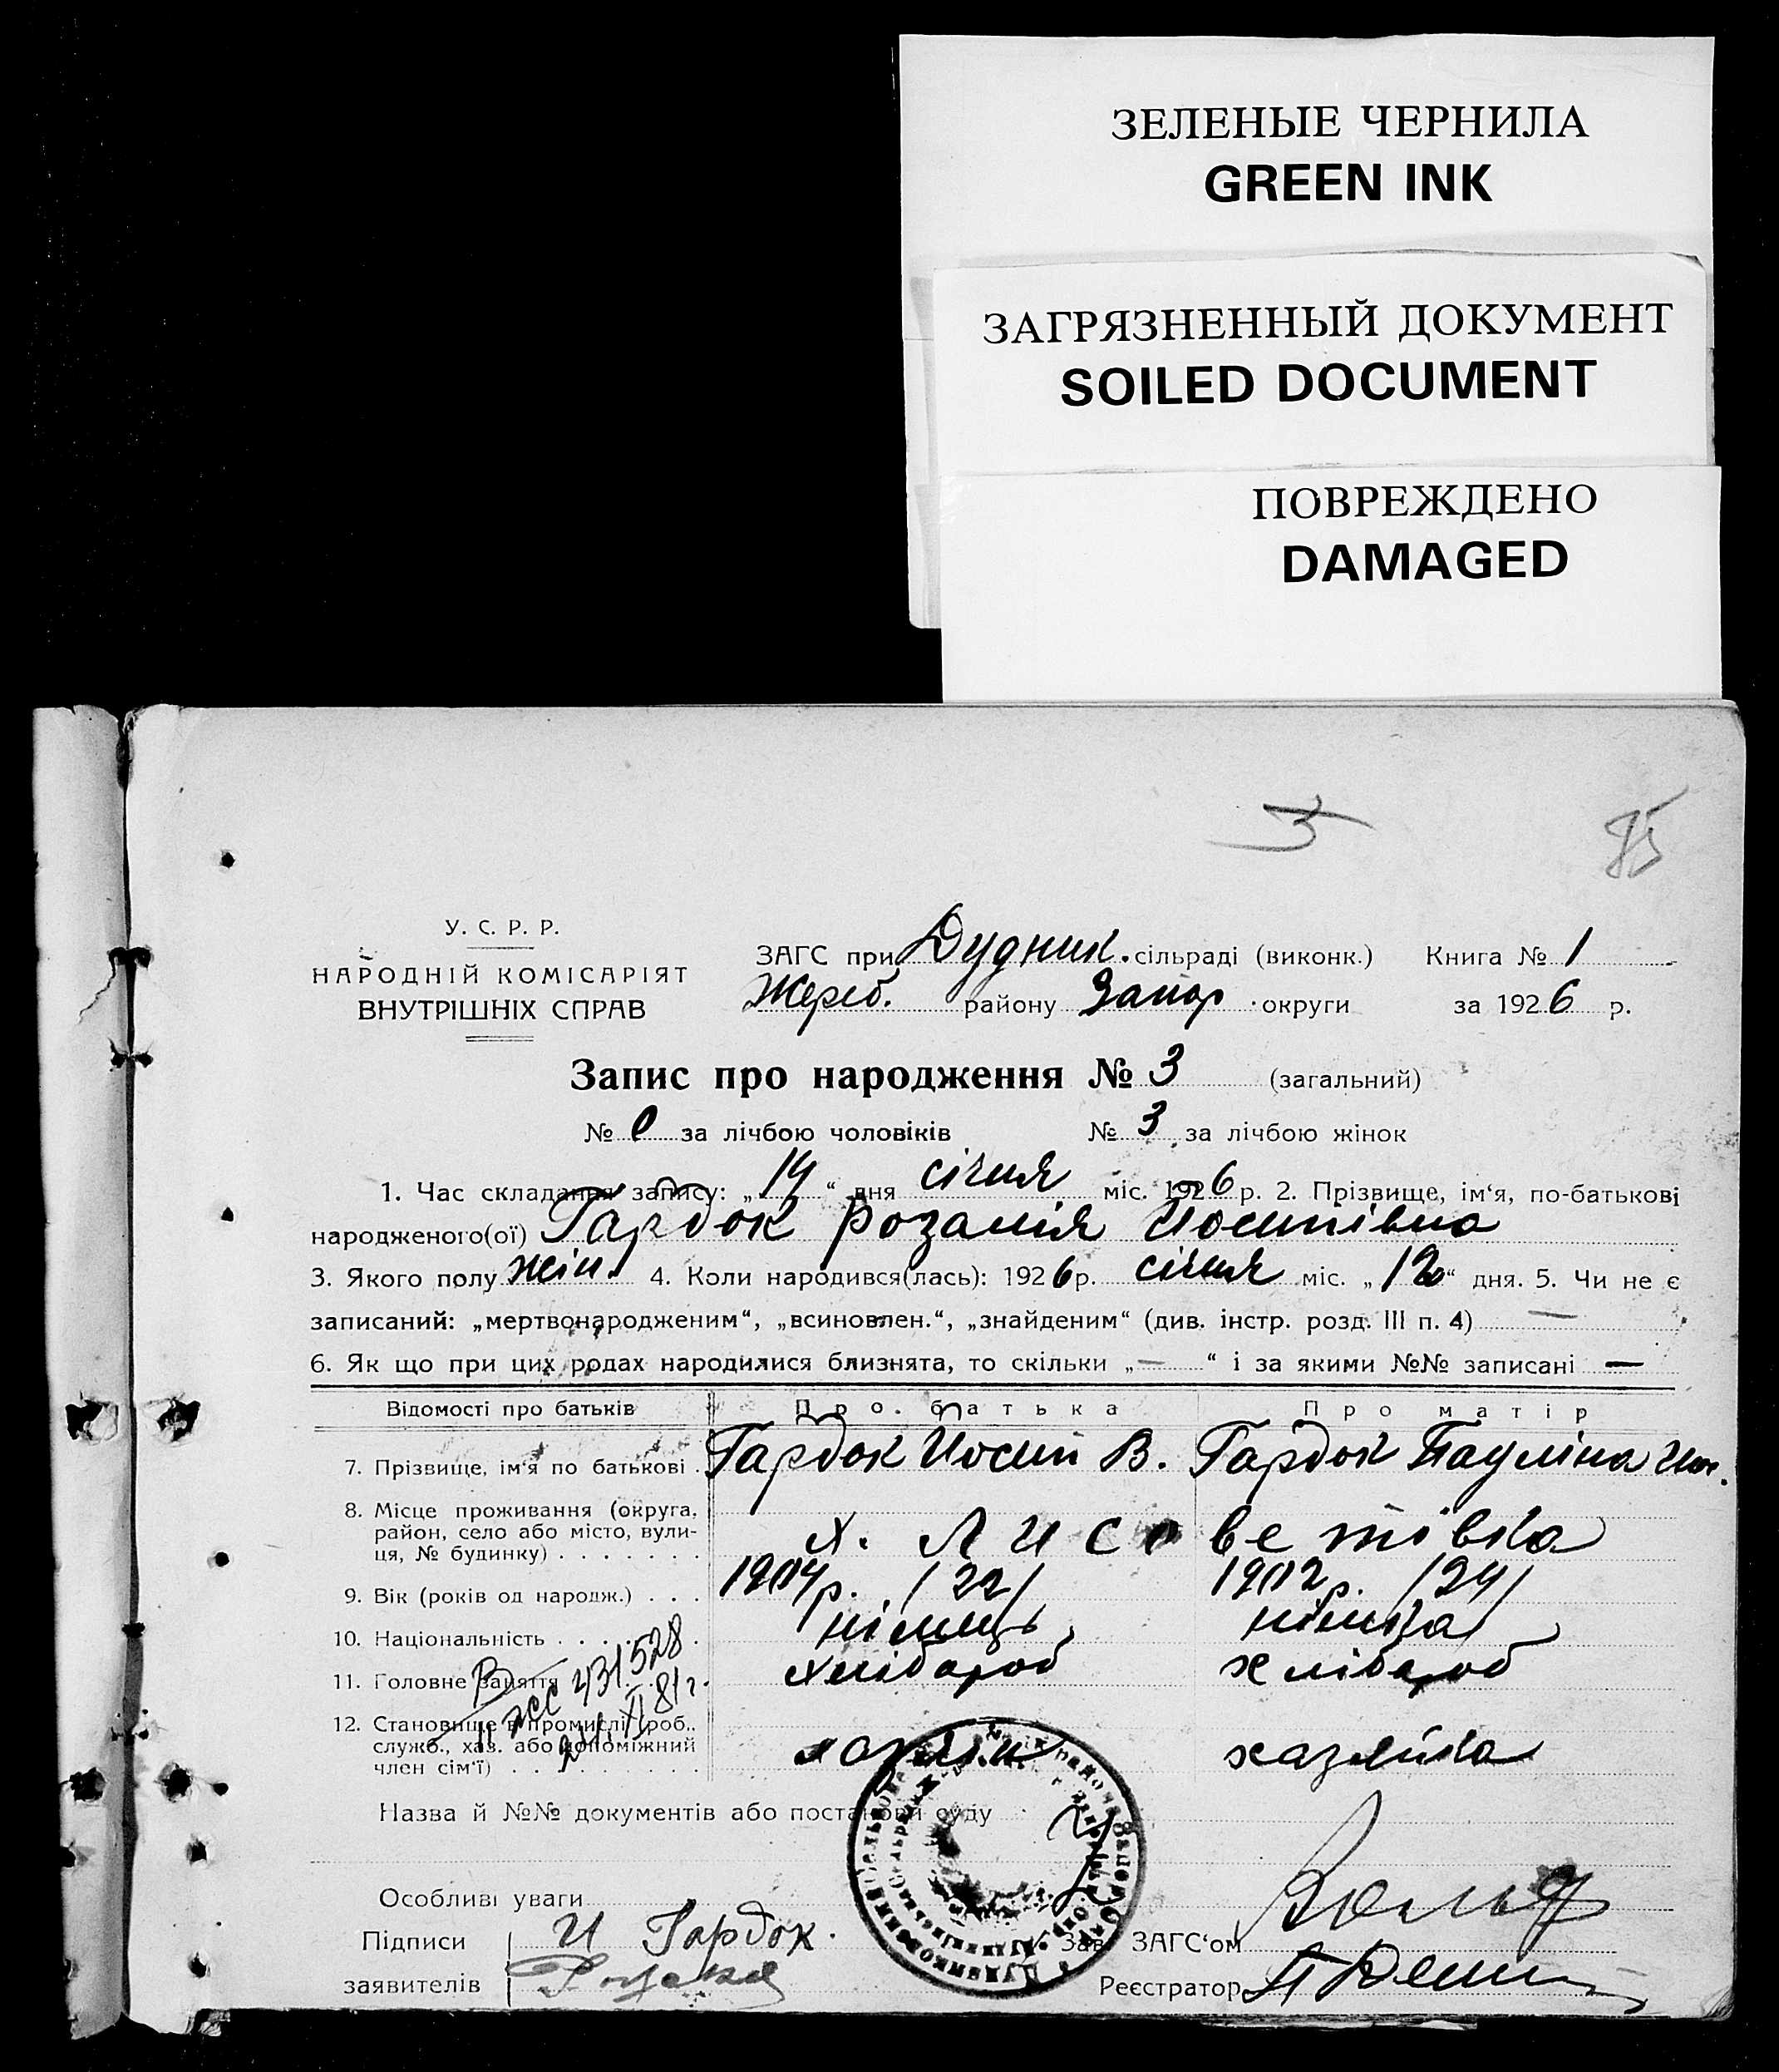 ЗЕЛЕНЫЕ ЧЕРНИЛА
GREEN INK
ЗАГРЯЗНЕННЫЙ ДОКУМЕНТ
SOILED DOCUMENT
ПОВРЕЖДЕНО
DAMAGED
У. С. Р. Р.
НАРОДНІЙ КОМІСАРІЯТ
ВНУТРІШНІХ СПРАВ
ЗАГС при Дудник. сільраді (виконк.) Книга № 1
Жереб. району Запор. округи за 1926 р.
Запис про народження № 3 (загальний)
№ 0 за лічбою чоловіків № 3 за лічбою жінок
1. Час складання запису: „14“ дня січня міс. 1926 р. 2. Прізвище, ім‘я, по-батькові
народженого(ої) Гардок Розалія Иосипівна
3. Якого полу жін. 4. Коли народився(лась): 1926 р. січня міс. „12“ дня. 5. Чи не є
записаний: „мертвонародженим“, „всиновлен.“, „знайденим“ (див. інстр. розд. III п. 4) —
6. Як що при цих родах народилися близнята, то скільки „—“ і за якими №№ записані —
Відомості про батьків Про батька Про матір
7. Прізвище, ім‘я по батькові Гардок Иосип В. Гардок Пауліна Иос.
8. Місце проживання (округа,
район, село або місто, вули-
ця, № будинку) х. Лисаветівка
9. Вік (років од народж.) 1904 р. /22/ 1902 р. /24/
10. Національність німець німка
11. Головне заняття хлібароб хлібароб
431528
12. Становище в промислі (роб.,
служб., хаз. або допоміжний
член сім‘ї) хазяїн хазяйка
81 г.
Назва й №№ документів або постанови суду
Особливі уваги
Підписи И Гардок.
заявителів
Зав. ЗАГС‘ом Вольф
Реєстратор